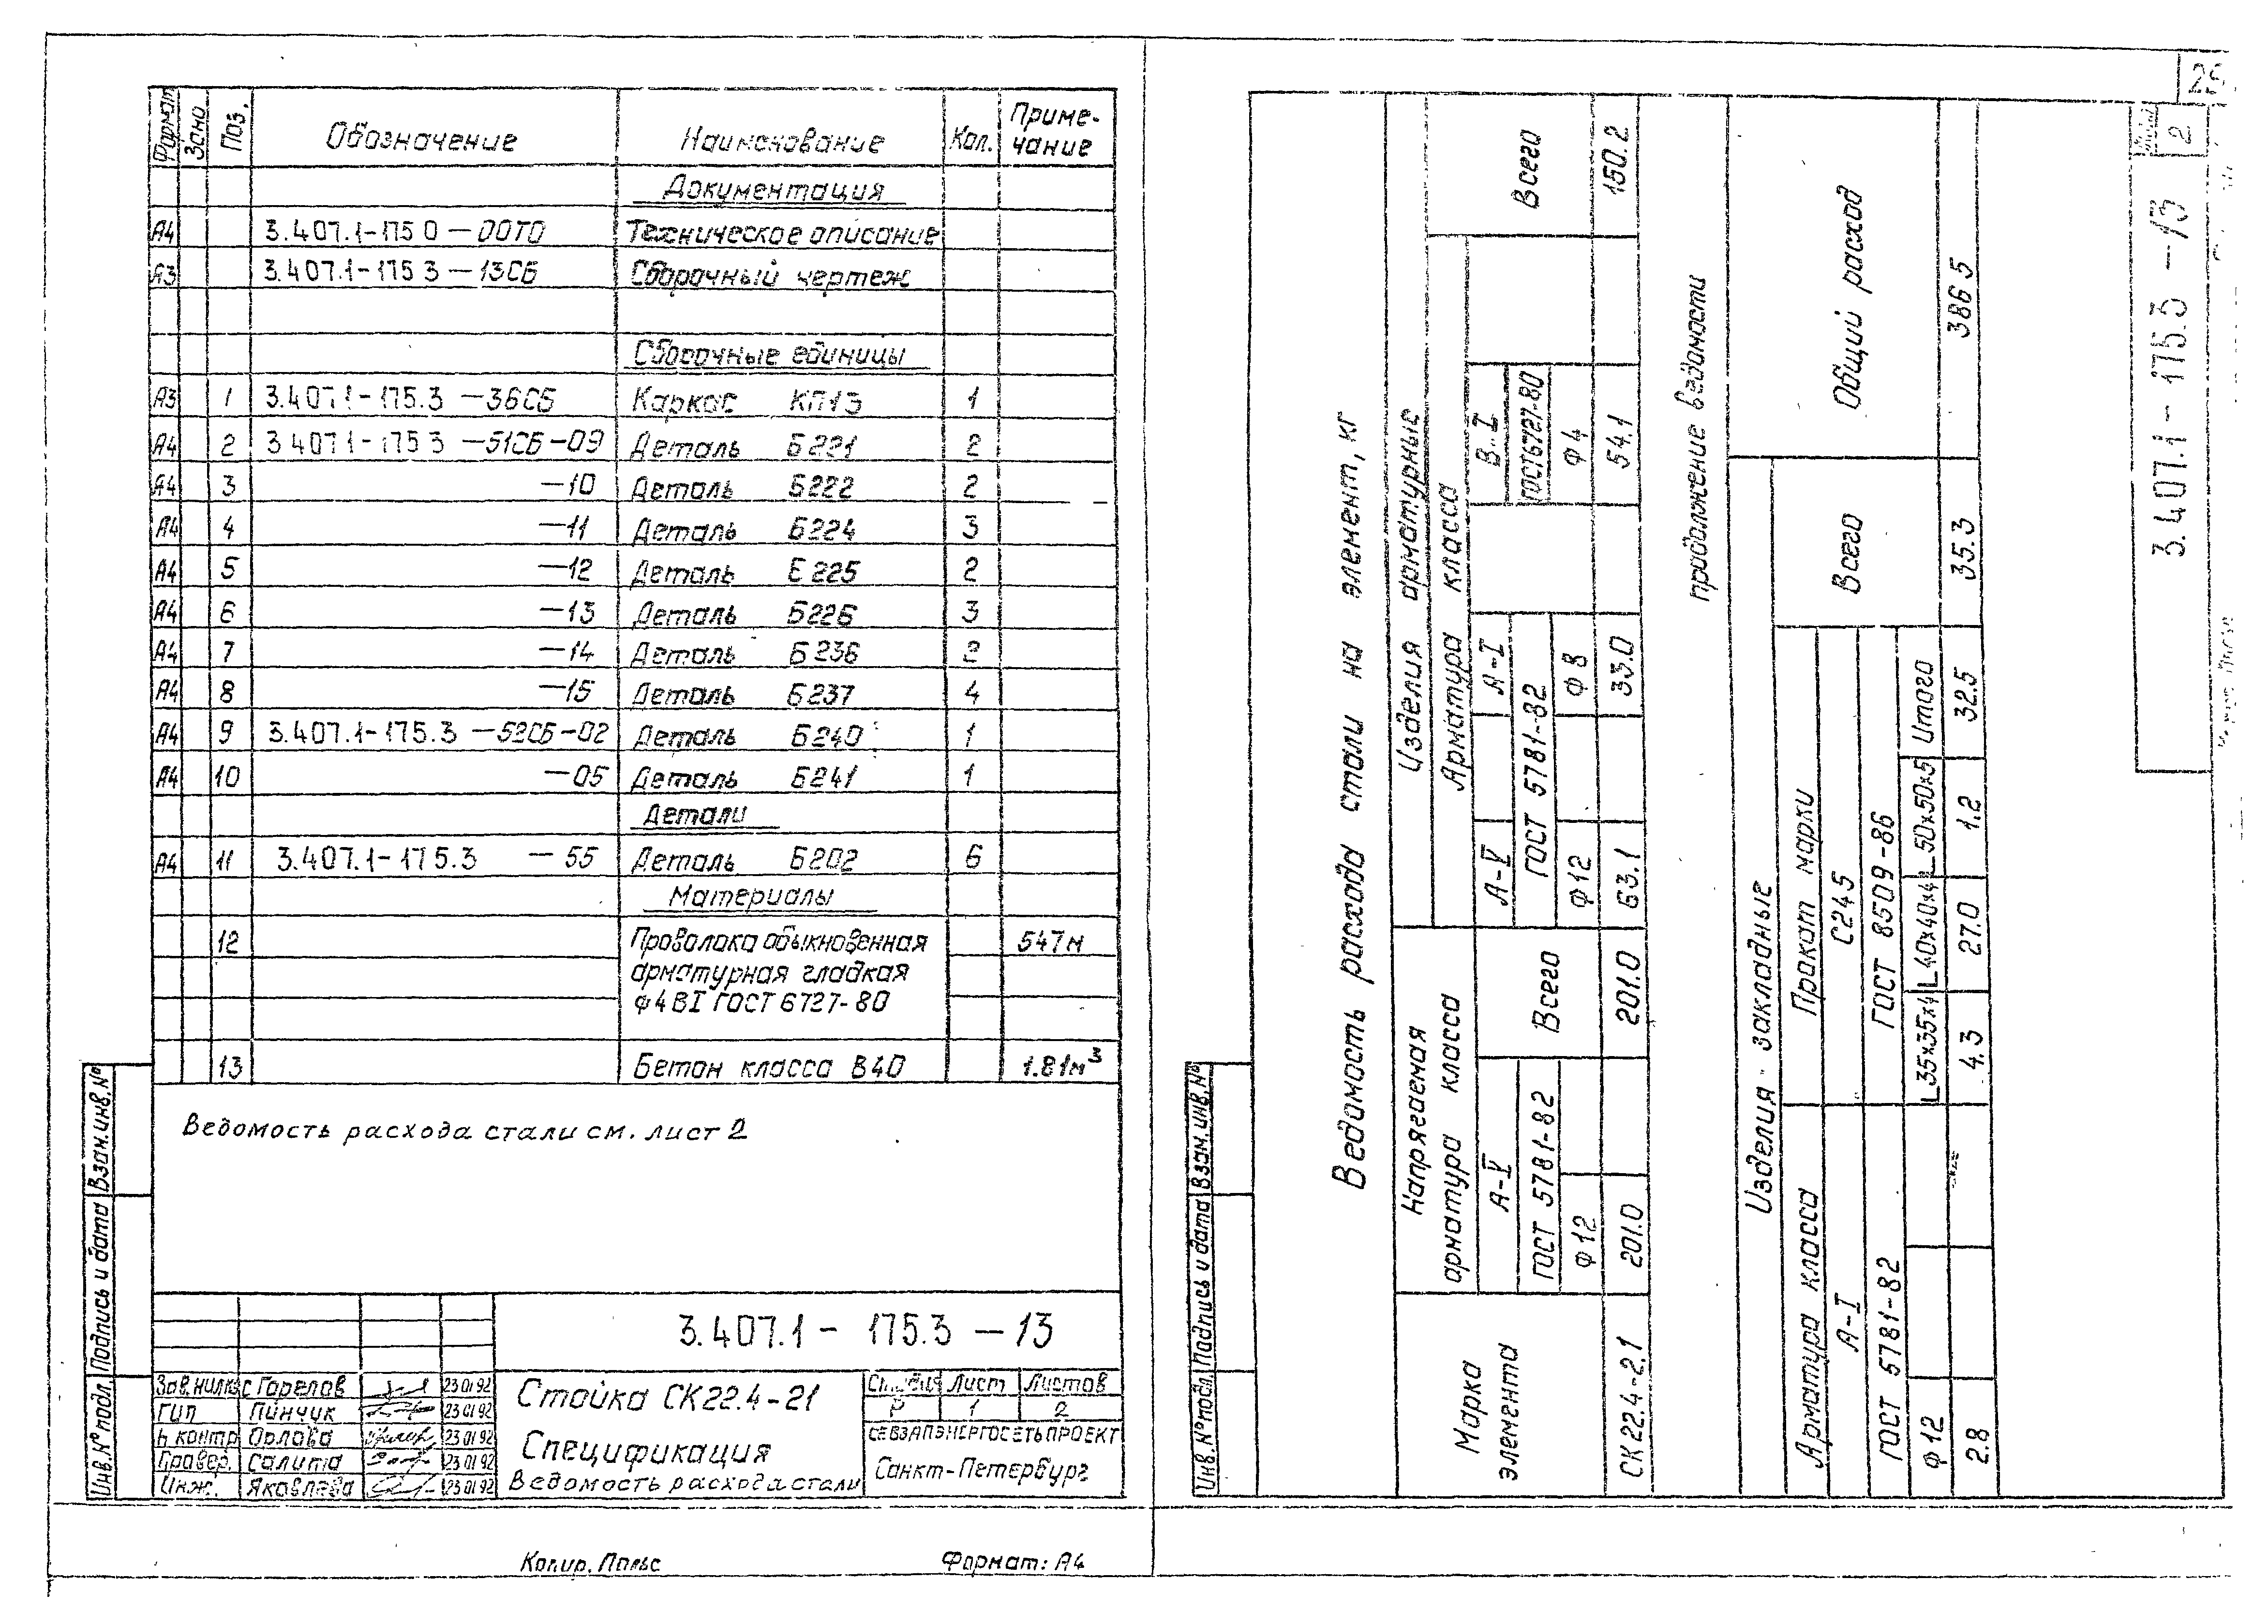 Формат Зона Поз. Обозначение Наименование Кол. Приме-
чание
Документация
А4 3.407.1-175 0 — 00ТО Техническое описание
А3 3.407.1-175 3 — 13СБ Сборочный чертеж
Сборочные единицы
А3 1 3.407.1-175.3 — 36СБ Каркас КП13 1
А4 2 3 407 1-175 3 — 51СБ-09 Деталь Б221 2
А4 3 —10 Деталь Б222 2
А4 4 —11 Деталь Б224 3
А4 5 —12 Деталь Б225 2
А4 6 —13 Деталь Б226 3
А4 7 —14 Деталь Б236 2
А4 8 —15 Деталь Б237 4
А4 9 3.407.1-175.3 — 52СБ-02 Деталь Б240 1
А4 10 —05 Деталь Б241 1
Детали
А4 11 3.407.1-175.3 — 55 Деталь Б202 6
Материалы
12 Проволока обыкновенная 547м
арматурная гладкая
ф4ВI ГОСТ 6727-80
13 Бетон класса В40 1.81м³
Ведомость расхода стали см. лист 2
3.407.1 - 175.3 — 13
Стойка СК22.4-21
Спецификация
Ведомость расхода стали
Стадия Лист Листов
Р 1 2
СЕВЗАПЭНЕРГОСЕТЬПРОЕКТ
Санкт-Петербург
Горелов 23 01 92
ГИП Пинчук 23 01 92
Н контр Орлова 23 01 92
Провер. Салита 23 01 92
Инж. Яковлева 23 01 92
Инв.№подл. Подпись и дата Взам.инв.№
Копир. Формат: А4
Ведомость расхода стали на элемент, кг
Марка
элемента
Напрягаемая
арматура класса
А-V
ГОСТ 5781-82
ф12
Всего
Изделия арматурные
Арматура класса
А-V А-I В-I
ГОСТ 5781-82 ГОСТ6727-80
ф12 ф8 ф4
Всего
СК22.4-2.1 201.0 201.0 63.1 33.0 54.1 150.2
продолжение ведомости
Изделия закладные
Общий расход
Арматура класса
А-I
ГОСТ 5781-82
ф12
Прокат марки
С245
ГОСТ 8509-86
L35х35х4 L40х40х4 L50х50х5 Итого
Всего
2.8 4.3 27.0 1.2 32.5 35.3 386 5
3.407.1-175.3 — 13
2
Инв.№подл. Подпись и дата Взам.инв.№